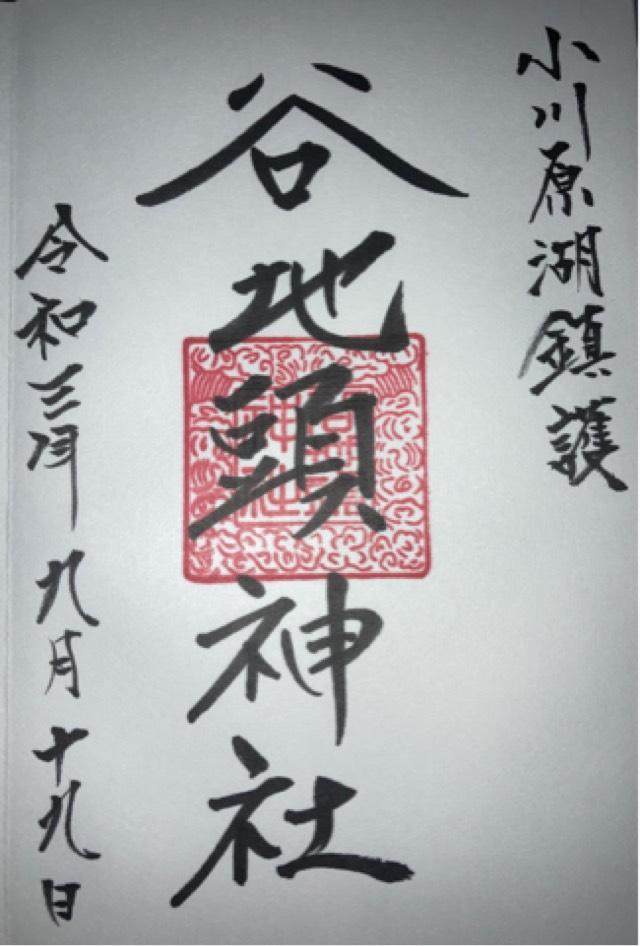 小川原湖鎮護
谷地頭神社
令和三年九月十九日